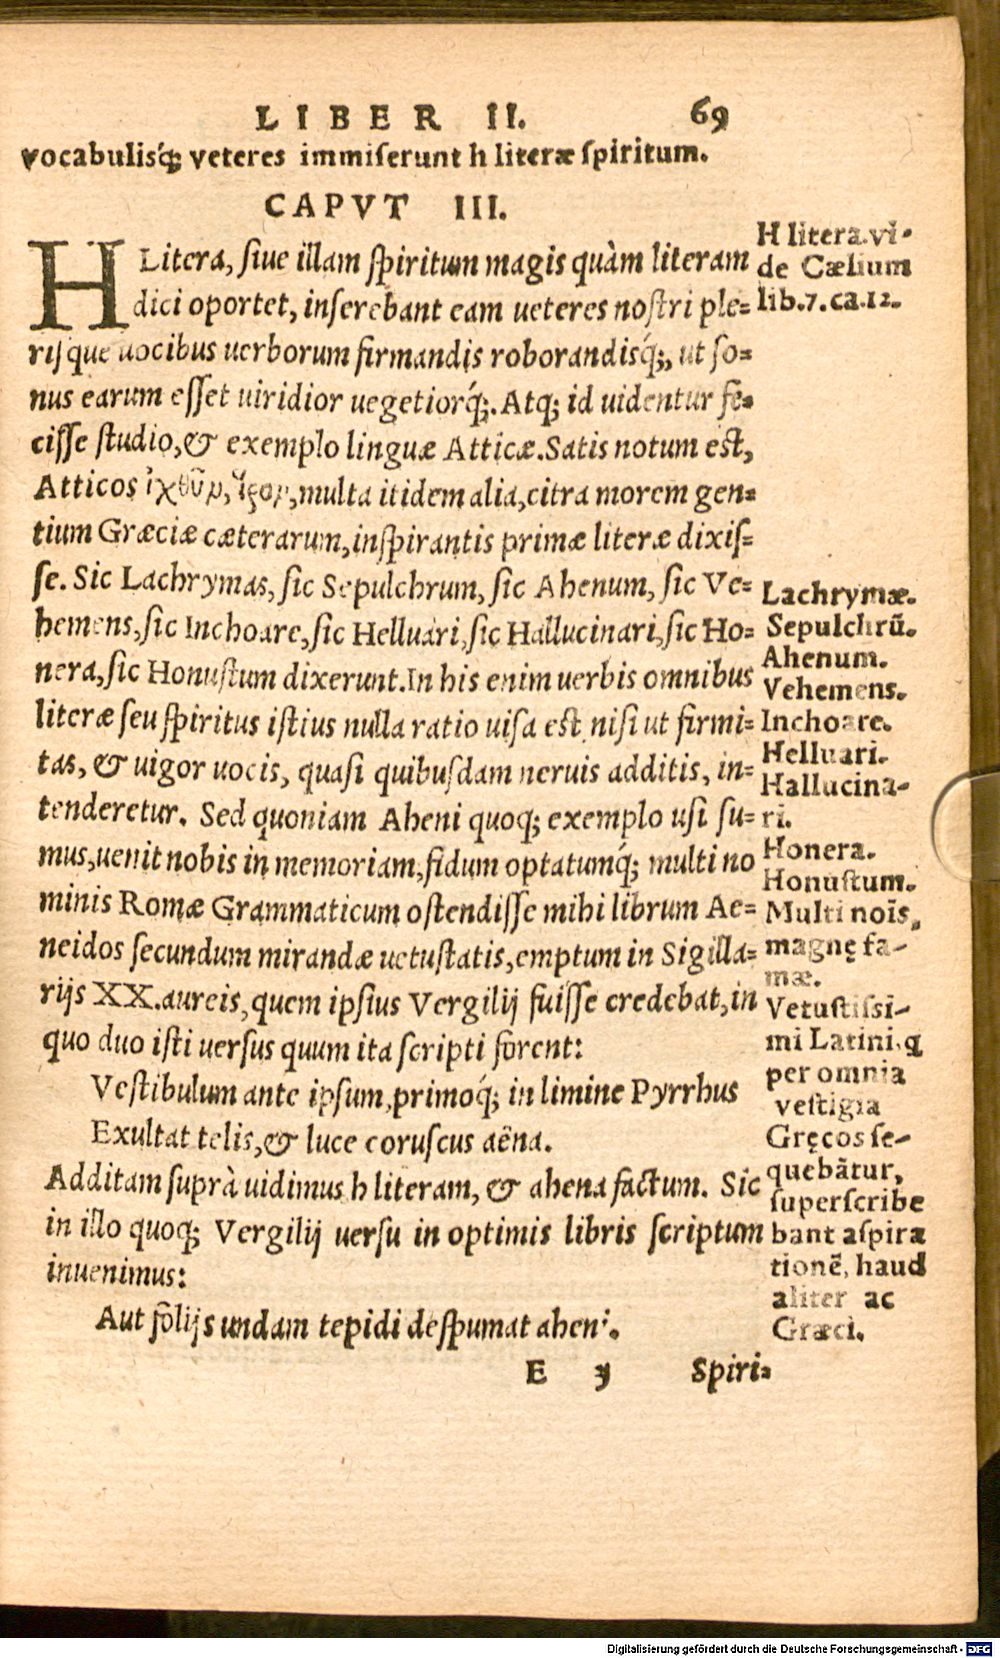 LIBER II. 69
vocabulisq́; veteres immiserunt h literæ spiritum.
CAPVT III.
H Litera, siue illam spiritum magis quàm literam
dici oportet, inserebant eam ueteres nostri ple=
risque uocibus uerborum firmandis roborandisq́;, ut so=
nus earum esset uiridior uegetiorq́;. Atq; id uidentur fe=
cisse studio, & exemplo linguæ Atticæ. Satis notum est,
Atticos ἱχθῦν, ἵρον, multa itidem alia, citra morem gen=
tium Græciæ cæterarum, inspirantis primæ literæ dixis=
se. Sic Lachrymas, sic Sepulchrum, sic Ahenum, sic Ve=
hemens, sic Inchoare, sic Helluari, sic Hallucinari, sic Ho=
nera, sic Honustum dixerunt. In his enim uerbis omnibus
literæ seu spiritus istius nulla ratio uisa est, nisi ut firmi=
tas, & uigor uocis, quasi quibusdam neruis additis, in=
tenderetur. Sed quoniam Aheni quoq; exemplo usi su=
mus, uenit nobis in memoriam, fidum optatumq́; multi no
minis Romæ Grammaticum ostendisse mihi librum Ae=
neidos secundum mirandæ uetustatis, emptum in Sigilla=
rijs XX. aureis, quem ipsius Vergilij fuisse credebat, in
quo duo isti uersus quum ita scripti forent:
Vestibulum ante ipsum, primoq́; in limine Pyrrhus
Exultat telis, & luce coruscus aëna.
Additam suprà uidimus h literam, & ahena factum. Sic
in illo quoq; Vergilij uersu in optimis libris scriptum
inuenimus:
Aut folijs undam tepidi despumat aheni.
E y Spiri=
H litera. vi-
de Cælium
lib.7.ca.12.
Lachrymæ.
Sepulchrū.
Ahenum.
Vehemens.
Inchoare.
Helluari.
Hallucina-
ri.
Honera.
Honustum.
Multi noīs,
magnę fa-
mæ.
Vetustissi-
mi Latini, q
per omnia
vestigia
Gręcos se-
quebātur,
superscribe
bant aspira
tionē, haud
aliter ac
Græci.
Digitalisierung gefördert durch die Deutsche Forschungsgemeinschaft - DFG